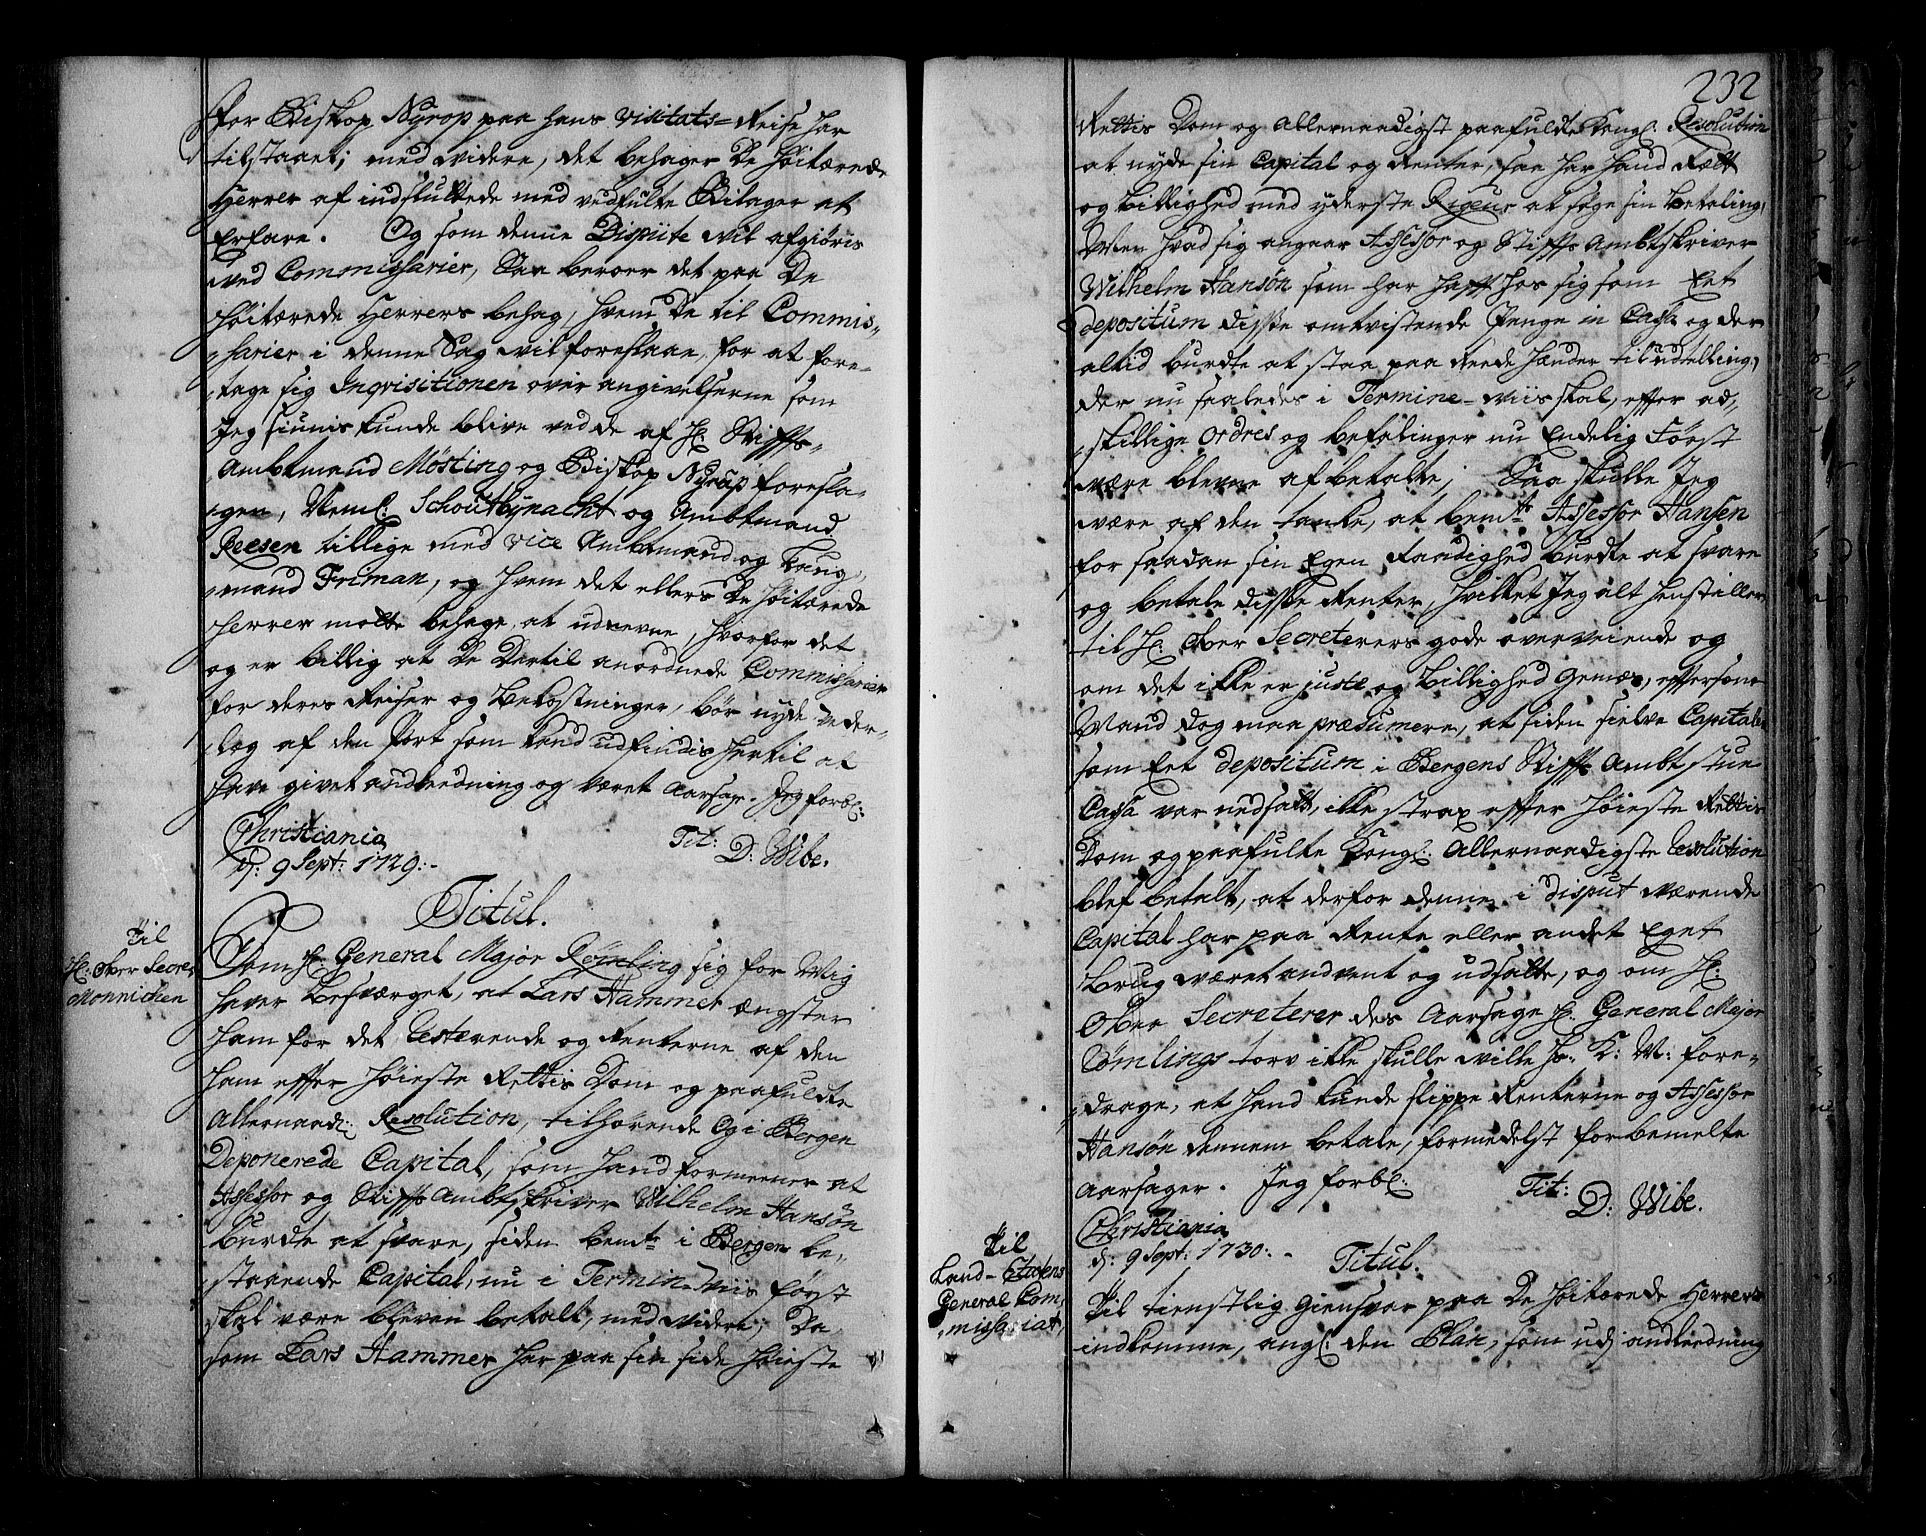 for Biskop Nyrop paa hans visitats-Reise har
tilstaaet; med videre, det behager De Høitærede
Herrer af indsluttede med vedfulte Bilager at
Erfare. Og som denne Dispüte vil afgiøris
ved Commissarier, Saa beroer det paa De
Høitærede Herrers behag, hvem De til Commis-
sarier i denne Sag vil foreslaae, for at fore-
tage sig Inqvisitionen over angivelserne som
Jeg siunis kunde blive ved de af H: Stiffts-
Ambtmand Møsting og Biskop Nyrop foresla-
gen, Neml: Schoutbynacht og Ambtmand
Reesen tillige med vice Ambtmand og Laug-
mand Friman, og hvem det ellers De Høitærede
Herrer motte behage, at udnevne, hvorfor det
og er billig at De Dertil anordnede Commissarier
for deres Reiser og Bekostninger, bør nyde Veder-
lag af den Part som kand udfindis hertil at
have givet andledning og været Aarsag. Jeg forbl:
Christiania
d: 9 Sept: 1729.-
Tit:
D: Wibe.
Titul.
Til
H: Ober Secret
Monnichen
Som H: General Major Rømling sig for Mig
haver besværget, at Lars Hammer ængster
ham for det Resterende og Renterne af den
ham effter Høieste Rettis Dom og paafuldte
Allernaad: Resolution, tilhørende Og i Bergen
Deponerede Capital, som hand formeener at
Assessor og Stiffts Ambtskriver Wilhelm Hansøn
burde at svare, siden bemte i Bergen be-
staaende Capital, nu i Termin-viis først
skal være bleven betalt, med videre; Da
som Lars Hammer har paa sin side Høieste
232
Rettis Dom og Allernaadigst paafuldte Kongl: Resolution
at nyde sin Capital og Renter, saa har hand Rætt
og billighed med yderste Rigeur at søge sin betaling,
Men hvad sig angaar Assessor og Stiffts Ambtskriver
Wilhelm Hansøn som har hafft hos sig som Eet
depositum disse omtvistende Penge in Cassa og der
altid burdte at staa paa Reede hænder til udtelling,
der nu saaledes i Termine-viis skal, effter ad-
skillige Ordres og befalinger nu Endelig Først
være blevne afbetalte; Saa skulle Jeg
være af den tanke, at bemte Assessor Hansen
for saadan sin Egen Raadighed burdte at svare
og betale disse Renter, hvilket Jeg alt henstiller
til H: Ober Secreterers gode overveiende og
om det ikke er juste og billighed Gemæs, efftersom
Mand dog maa præsumere, at siden sielve Capitalen
som Eet depositum i Bergens Stiffts Ambtstue
Cassa var nedsatt, ikke strax effter Høieste Rettis
Dom og paafulte Kongl: Allernaadigste Resolution
blef betalt, at derfor denne i disput værende
Capital har paa Rente eller andet Eget
Brug været andvent og udsatte, og om H:
Ober Secreterer des Aarsage H: General Major
Rømlings torv ikke skulle ville Hs: K: M: fore-
drage, at hand kunde slippe Renterne og Assessor
Hansøn dennem betale, formedelst forbemelte
Aarsager. Jeg forbl:
Tit:
D: Wibe.
Christiania
d: 9 Sept: 1730.-
Titul.
Til
Land-Etatens
General Com-
missariat,
Til tienstlig Giensvar paa De Høitærede Herrers
indkomne, angl: den Plan, som udj andledning